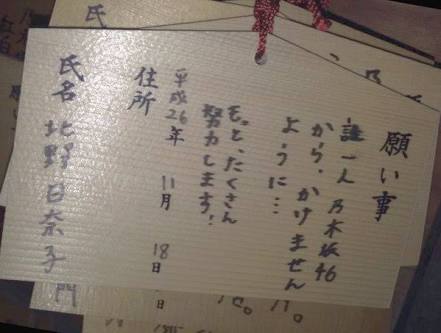 願い事
誰一人 乃木坂46
から、かけません
ように…
もっと、たくさん
努力します!
平成26年 11月 18日
住所
氏名 北野日奈子